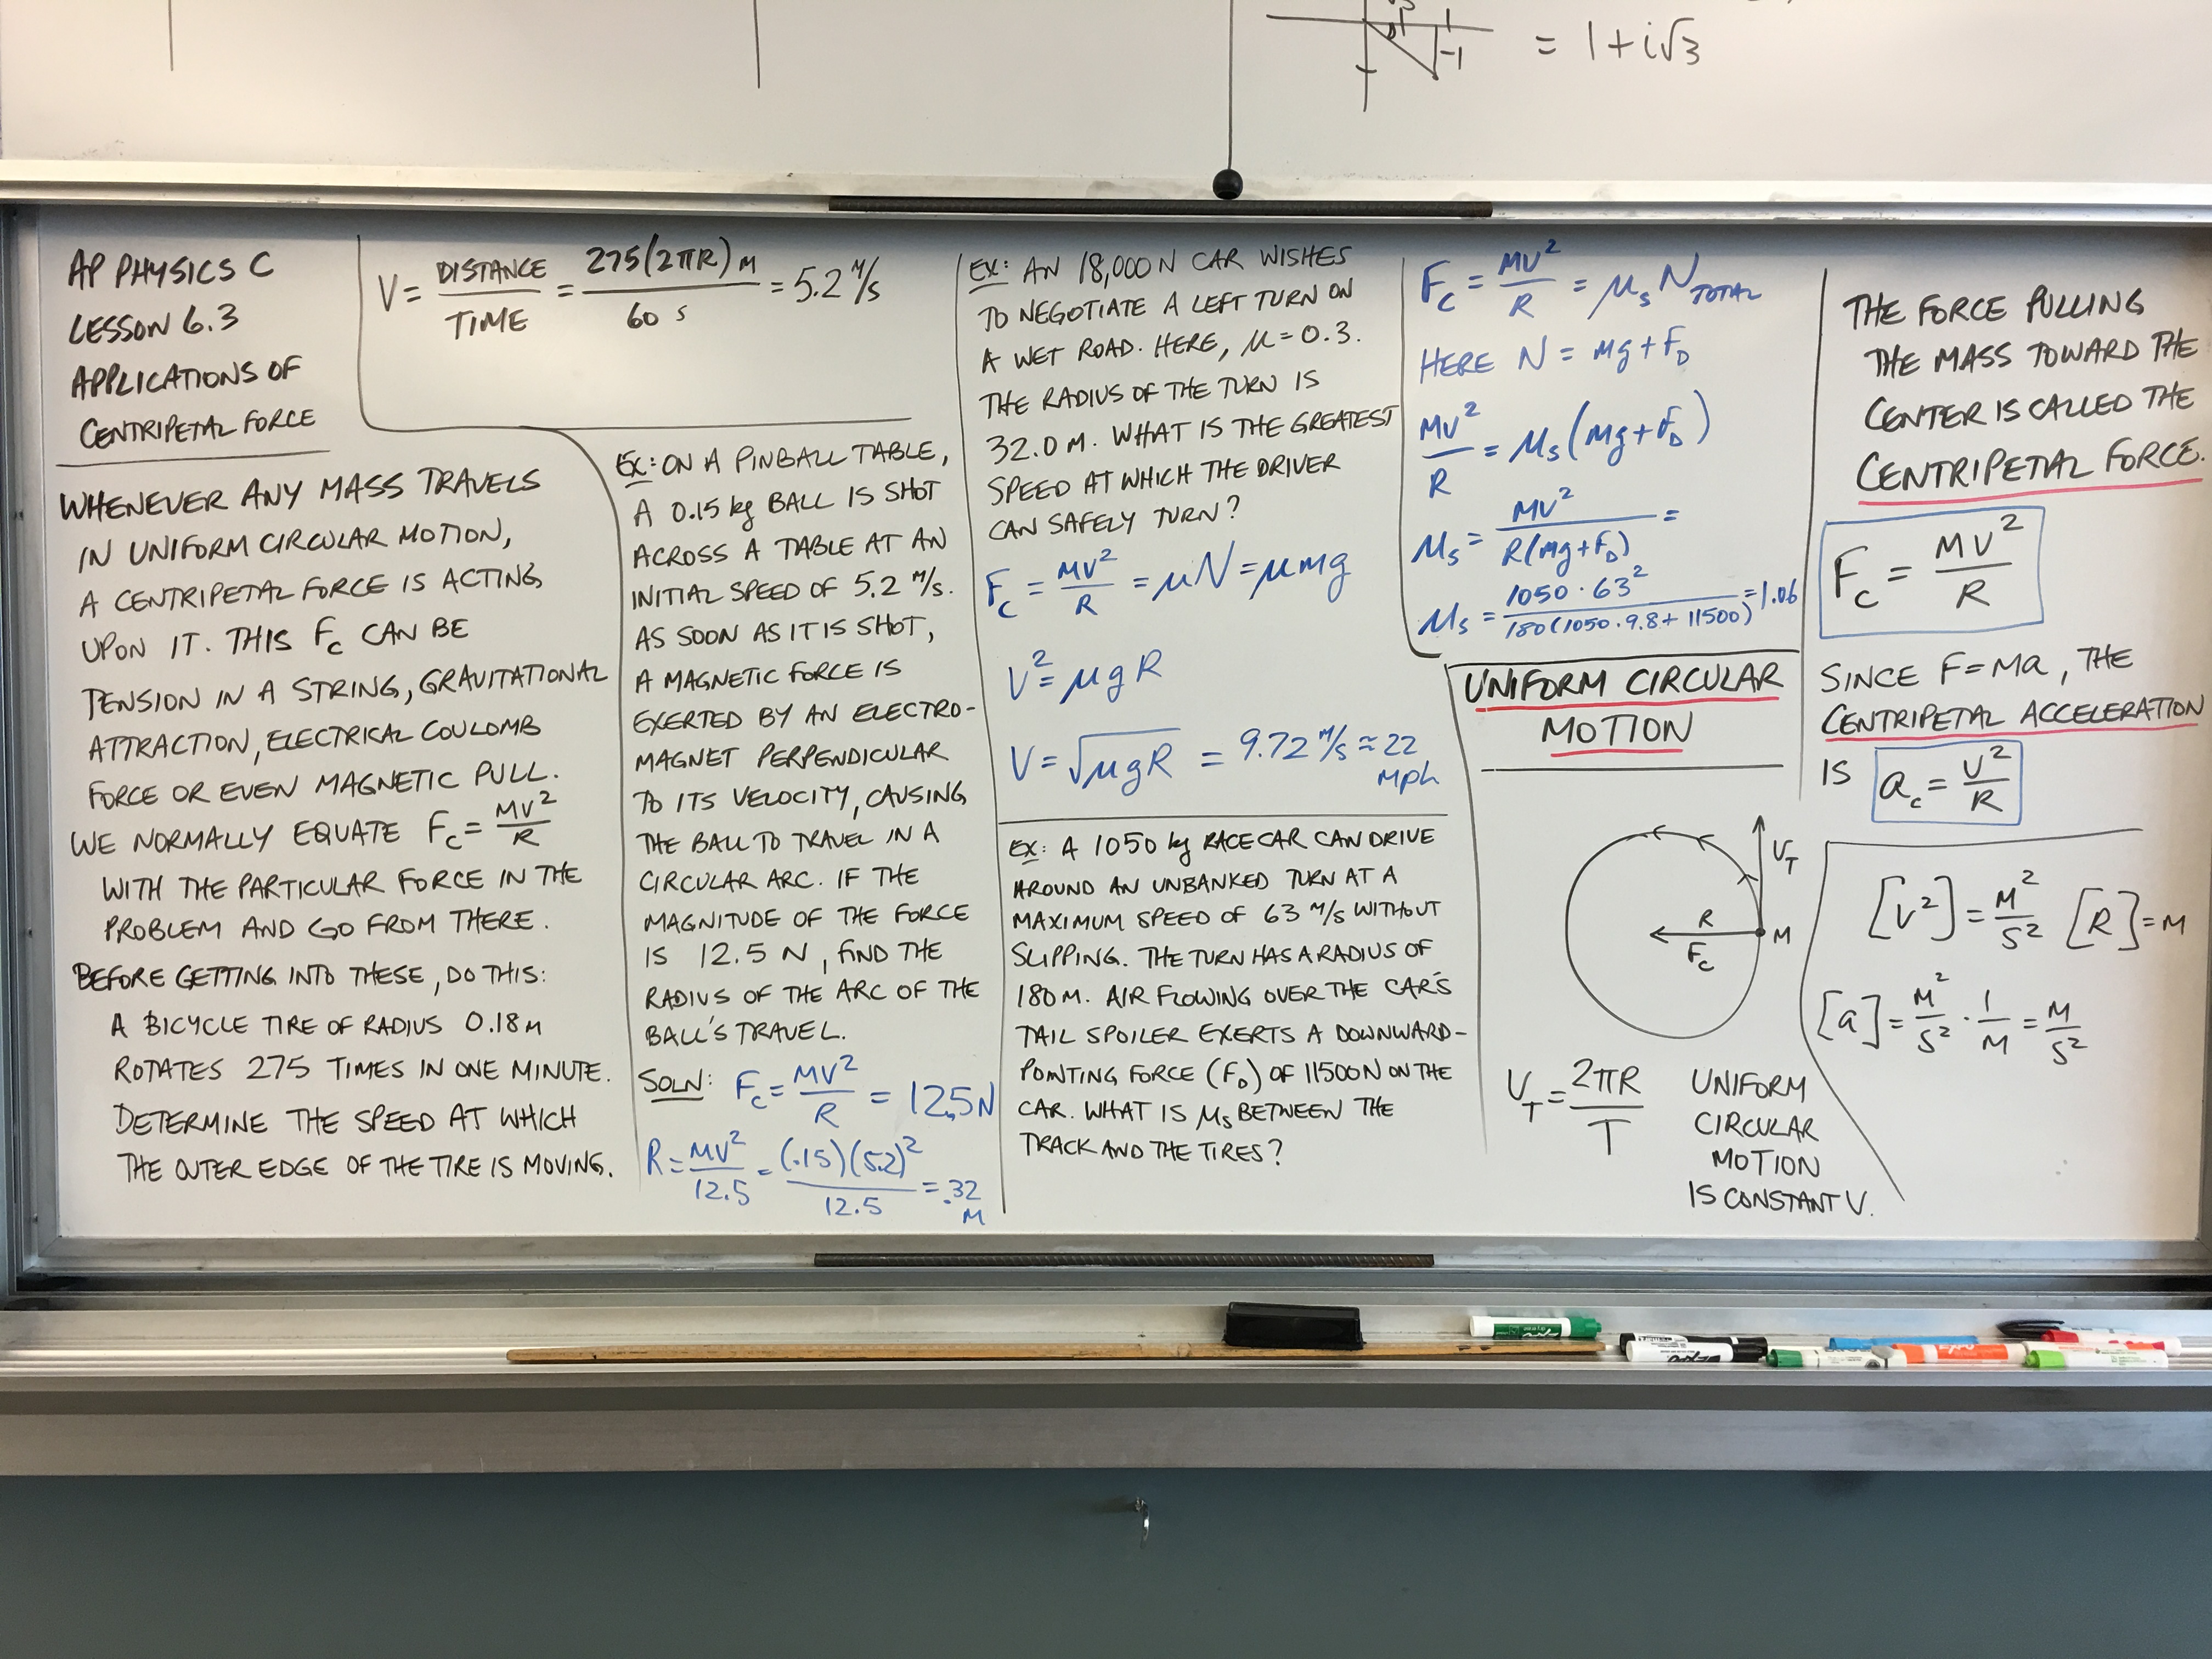 = 1+i√3
-1
AP PHYSICS C
LESSON 6.3
APPLICATIONS OF
CENTRIPETAL FORCE
WHENEVER ANY MASS TRAVELS
IN UNIFORM CIRCULAR MOTION,
A CENTRIPETAL FORCE IS ACTING
UPON IT. THIS Fc CAN BE
TENSION IN A STRING, GRAVITATIONAL
ATTRACTION, ELECTRICAL COULOMB
FORCE OR EVEN MAGNETIC PULL.
WE NORMALLY EQUATE Fc = MV²/R
WITH THE PARTICULAR FORCE IN THE
PROBLEM AND GO FROM THERE.
BEFORE GETTING INTO THESE, DO THIS:
A BICYCLE TIRE OF RADIUS 0.18M
ROTATES 275 TIMES IN ONE MINUTE.
DETERMINE THE SPEED AT WHICH
THE OUTER EDGE OF THE TIRE IS MOVING.
V = DISTANCE/TIME = 275(2πR)M/60 S = 5.2 M/S
EX: ON A PINBALL TABLE,
A 0.15 kg BALL IS SHOT
ACROSS A TABLE AT AN
INITIAL SPEED OF 5.2 M/S.
AS SOON AS IT IS SHOT,
A MAGNETIC FORCE IS
EXERTED BY AN ELECTRO-
MAGNET PERPENDICULAR
TO ITS VELOCITY, CAUSING
THE BALL TO TRAVEL IN A
CIRCULAR ARC. IF THE
MAGNITUDE OF THE FORCE
IS 12.5 N, FIND THE
RADIUS OF THE ARC OF THE
BALL'S TRAVEL.
SOLN: Fc = MV²/R = 12.5N
R = MV²/12.5 = (.15)(5.2)²/12.5 = .32
M
EX: AN 18,000 N CAR WISHES
TO NEGOTIATE A LEFT TURN ON
A WET ROAD. HERE, μ = 0.3.
THE RADIUS OF THE TURN IS
32.0 M. WHAT IS THE GREATEST
SPEED AT WHICH THE DRIVER
CAN SAFELY TURN?
Fc = MV²/R = μN = μmg
V² = μgR
V = √μgR = 9.72 M/S ≈ 22
MPh
EX: A 1050 kg RACE CAR CAN DRIVE
AROUND AN UNBANKED TURN AT A
MAXIMUM SPEED OF 63 M/S WITHOUT
SLIPPING. THE TURN HAS A RADIUS OF
180 M. AIR FLOWING OVER THE CAR'S
TAIL SPOILER EXERTS A DOWNWARD-
POINTING FORCE (FD) OF 11500N ON THE
CAR. WHAT IS μs BETWEEN THE
TRACK AND THE TIRES?
Fc = MV²/R = μs N TOTAL
HERE N = Mg + FD
MV²/R = μs(Mg + FD)
μs = MV²/R(Mg + FD) =
μs = 1050 · 63²/180(1050 · 9.8 + 11500) = 1.06
UNIFORM CIRCULAR
MOTION
VT
R
Fc
M
VT = 2πR/T
UNIFORM
CIRCULAR
MOTION
IS CONSTANT V.
THE FORCE PULLING
THE MASS TOWARD THE
CENTER IS CALLED THE
CENTRIPETAL FORCE.
Fc = MV²/R
SINCE F = Ma, THE
CENTRIPETAL ACCELERATION
IS ac = V²/R
[V²] = M²/S² [R] = M
[a] = M²/S² · 1/M = M/S²
EXPO
EXPO